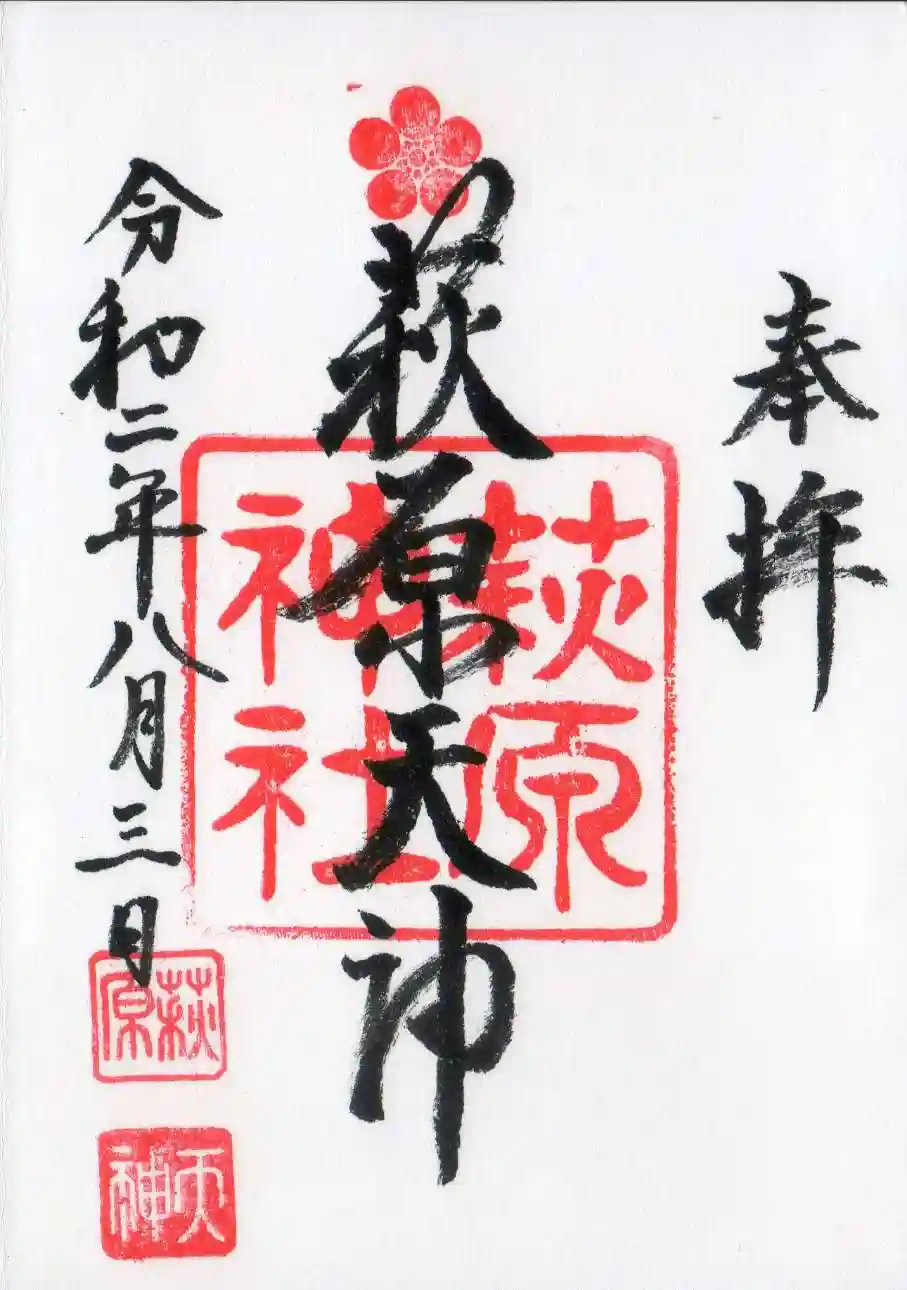 奉拝
萩原天神
萩原
神社
令和二年八月三日
萩原
天神